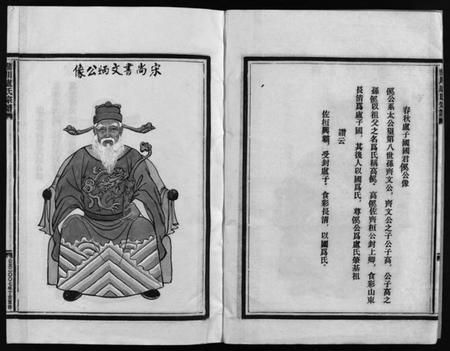 春秋盧子國國君傒公像
傒公系太公望第八世孫齊文公，齊文公之子公子高，公子高之
孫傒以祖父之名爲氏稱高傒。高傒佐齊桓公封上卿，食彩山東
長清爲盧子國，其後人以國爲氏，尊傒公爲盧氏肇基祖
讚云
佐桓興霸，受封盧子；食彩長清，以國爲氏。
宋尚書文炳公像